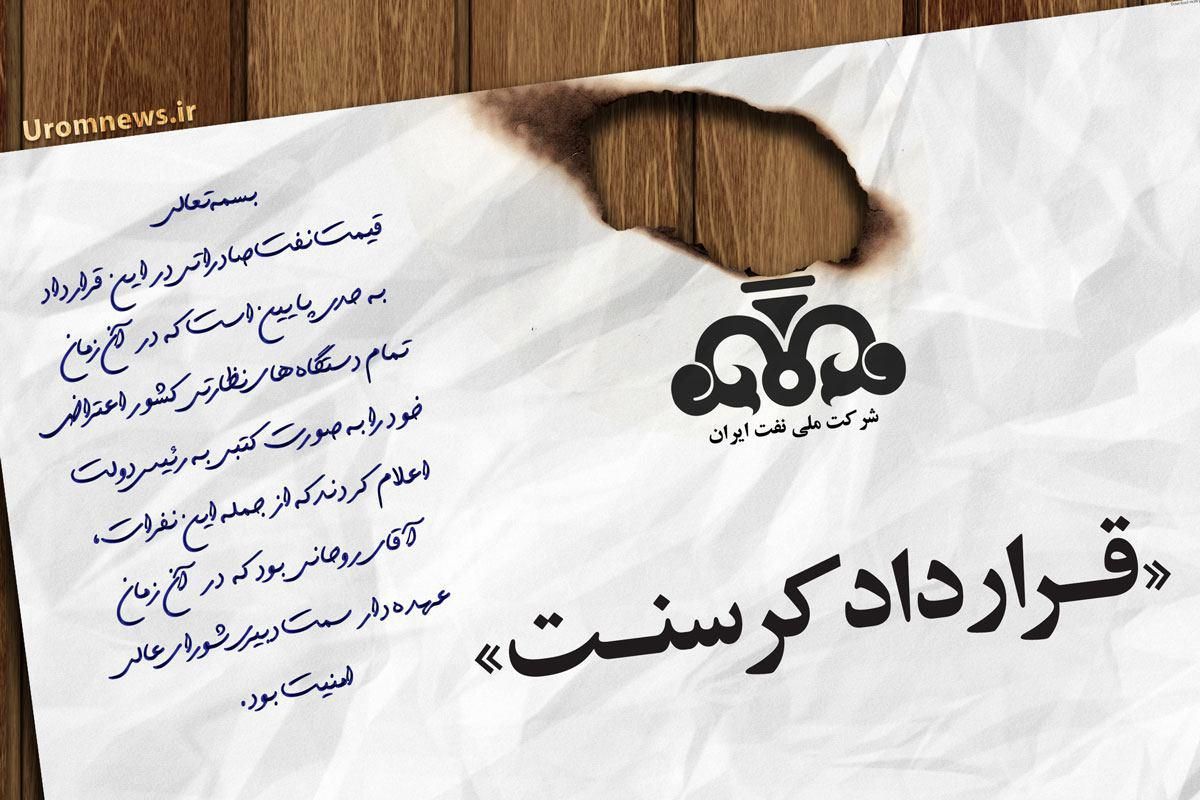 Uromnews.ir
بسمه تعالی
قیمت نفت صادراتی در این قرارداد
به حدی پایین است که در آن زمان
تمام دستگاه های نظارتی کشور اعتراض
خود را به صورت کتبی به رئیس دولت
اعلام کردند که از جمله این نفرات،
آقای روحانی بود که در آن زمان
عهده دار سمت دبیری شورای عالی
امنیت بود.
شرکت ملی نفت ایران
«قرارداد کرسنت»